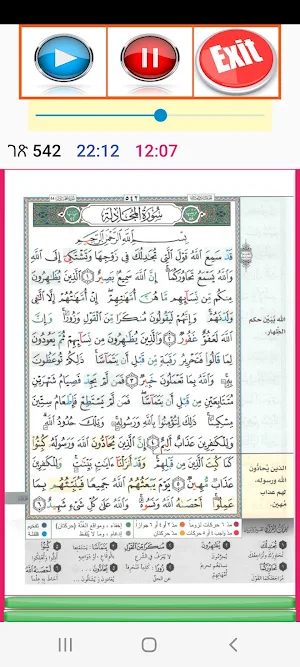 Exit
ገጽ 542 22:12 12:07
٥٤٢
سُورَةُ المُجَادلة
بِسْمِ اللَّهِ الرَّحْمَٰنِ الرَّحِيمِ
قَدْ سَمِعَ اللَّهُ قَوْلَ الَّتِي تُجَادِلُكَ فِي زَوْجِهَا وَتَشْتَكِي إِلَى اللَّهِ
وَاللَّهُ يَسْمَعُ تَحَاوُرَكُمَا إِنَّ اللَّهَ سَمِيعٌ بَصِيرٌ ١ الَّذِينَ يُظَاهِرُونَ
مِنكُم مِّن نِّسَائِهِم مَّا هُنَّ أُمَّهَاتِهِمْ إِنْ أُمَّهَاتُهُمْ إِلَّا اللَّائِي
وَلَدْنَهُمْ وَإِنَّهُمْ لَيَقُولُونَ مُنكَرًا مِّنَ الْقَوْلِ وَزُورًا وَإِنَّ
اللَّهَ لَعَفُوٌّ غَفُورٌ ٢ وَالَّذِينَ يُظَاهِرُونَ مِن نِّسَائِهِمْ ثُمَّ يَعُودُونَ
لِمَا قَالُوا فَتَحْرِيرُ رَقَبَةٍ مِّن قَبْلِ أَن يَتَمَاسَّا ذَٰلِكُمْ تُوعَظُونَ
بِهِ وَاللَّهُ بِمَا تَعْمَلُونَ خَبِيرٌ ٣ فَمَن لَّمْ يَجِدْ فَصِيَامُ شَهْرَيْنِ
مُتَتَابِعَيْنِ مِن قَبْلِ أَن يَتَمَاسَّا فَمَن لَّمْ يَسْتَطِعْ فَإِطْعَامُ سِتِّينَ
مِسْكِينًا ذَٰلِكَ لِتُؤْمِنُوا بِاللَّهِ وَرَسُولِهِ وَتِلْكَ حُدُودُ اللَّهِ
وَلِلْكَافِرِينَ عَذَابٌ أَلِيمٌ ٤ إِنَّ الَّذِينَ يُحَادُّونَ اللَّهَ وَرَسُولَهُ كُبِتُوا
كَمَا كُبِتَ الَّذِينَ مِن قَبْلِهِمْ وَقَدْ أَنزَلْنَا آيَاتٍ بَيِّنَاتٍ وَلِلْكَافِرِينَ
عَذَابٌ مُّهِينٌ ٥ يَوْمَ يَبْعَثُهُمُ اللَّهُ جَمِيعًا فَيُنَبِّئُهُم بِمَا
عَمِلُوا أَحْصَاهُ اللَّهُ وَنَسُوهُ وَاللَّهُ عَلَىٰ كُلِّ شَيْءٍ شَهِيدٌ ٦
الله يُبَيِّن حكم
الظِّهار.
الذين يُحادُّون
الله ورسوله،
لهم عذاب
مُهين.